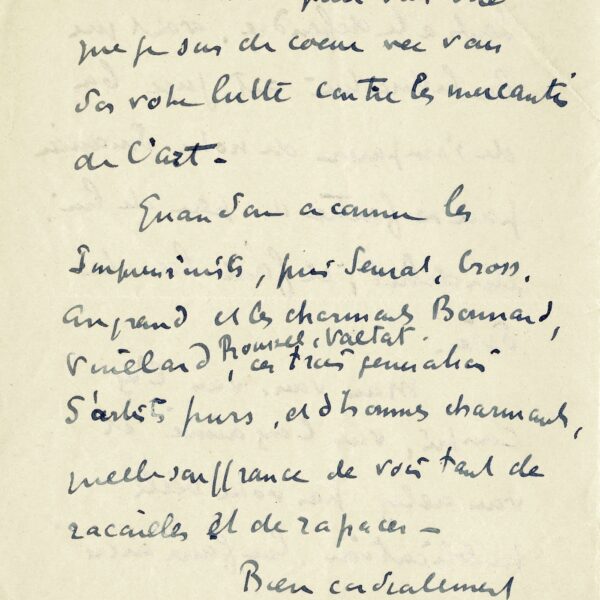 que je suis de coeur avec vous
dans votre lutte contre les mercantis
de l'art -
Quand on a connu les
Impressionnistes, puis Seurat, Cross,
Angrand et les charmants Bonnard,
Vuillard, Roussel, Valtat. ces trois générations
d'artistes purs, et d'hommes charmants,
quelle souffrance de voir tant de
racailles et de rapaces -
Bien cordialement